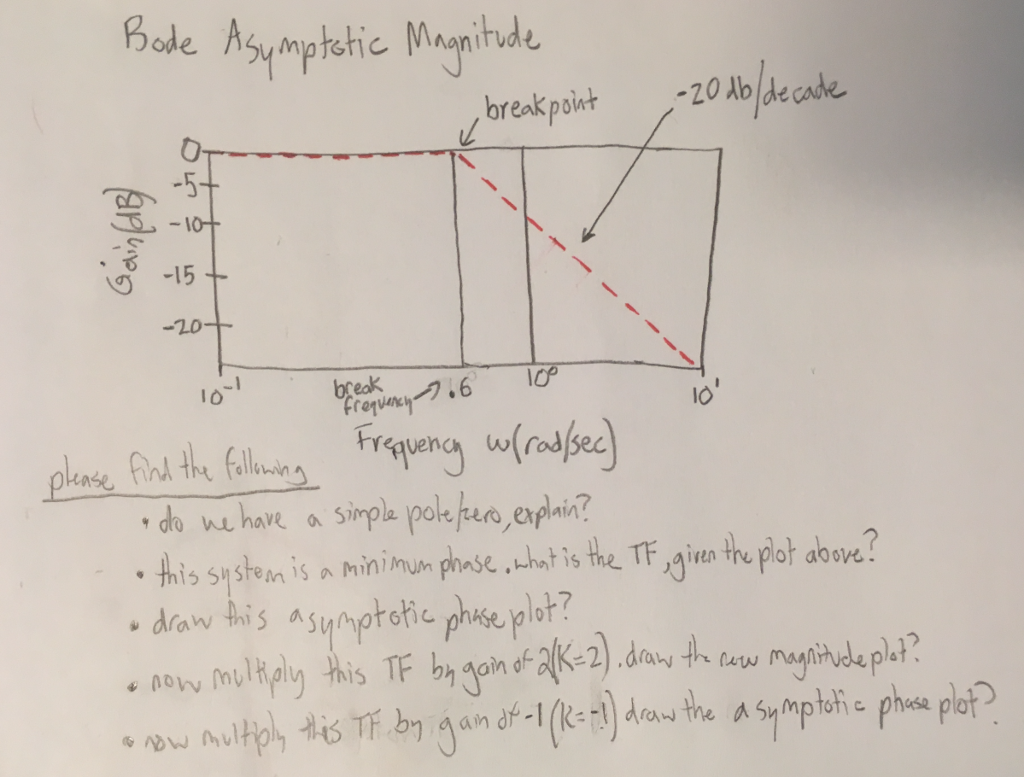 Bode Asymptotic Magnitude
breakpoint
-20 db/decade
0
-5
-10
-15
-20
Gain(dB)
10^-1
break
frequency
.6
10^0
10^1
Frequency w(rad/sec)
please find the following
• do we have a simple pole/zero, explain?
• this system is a minimum phase. what is the TF, given the plot above?
• draw this asymptotic phase plot?
• now multiply this TF by gain of 2(K=2). draw the new magnitude plot?
• now multiply this TF by gain of -1 (K=-1) draw the asymptotic phase plot?